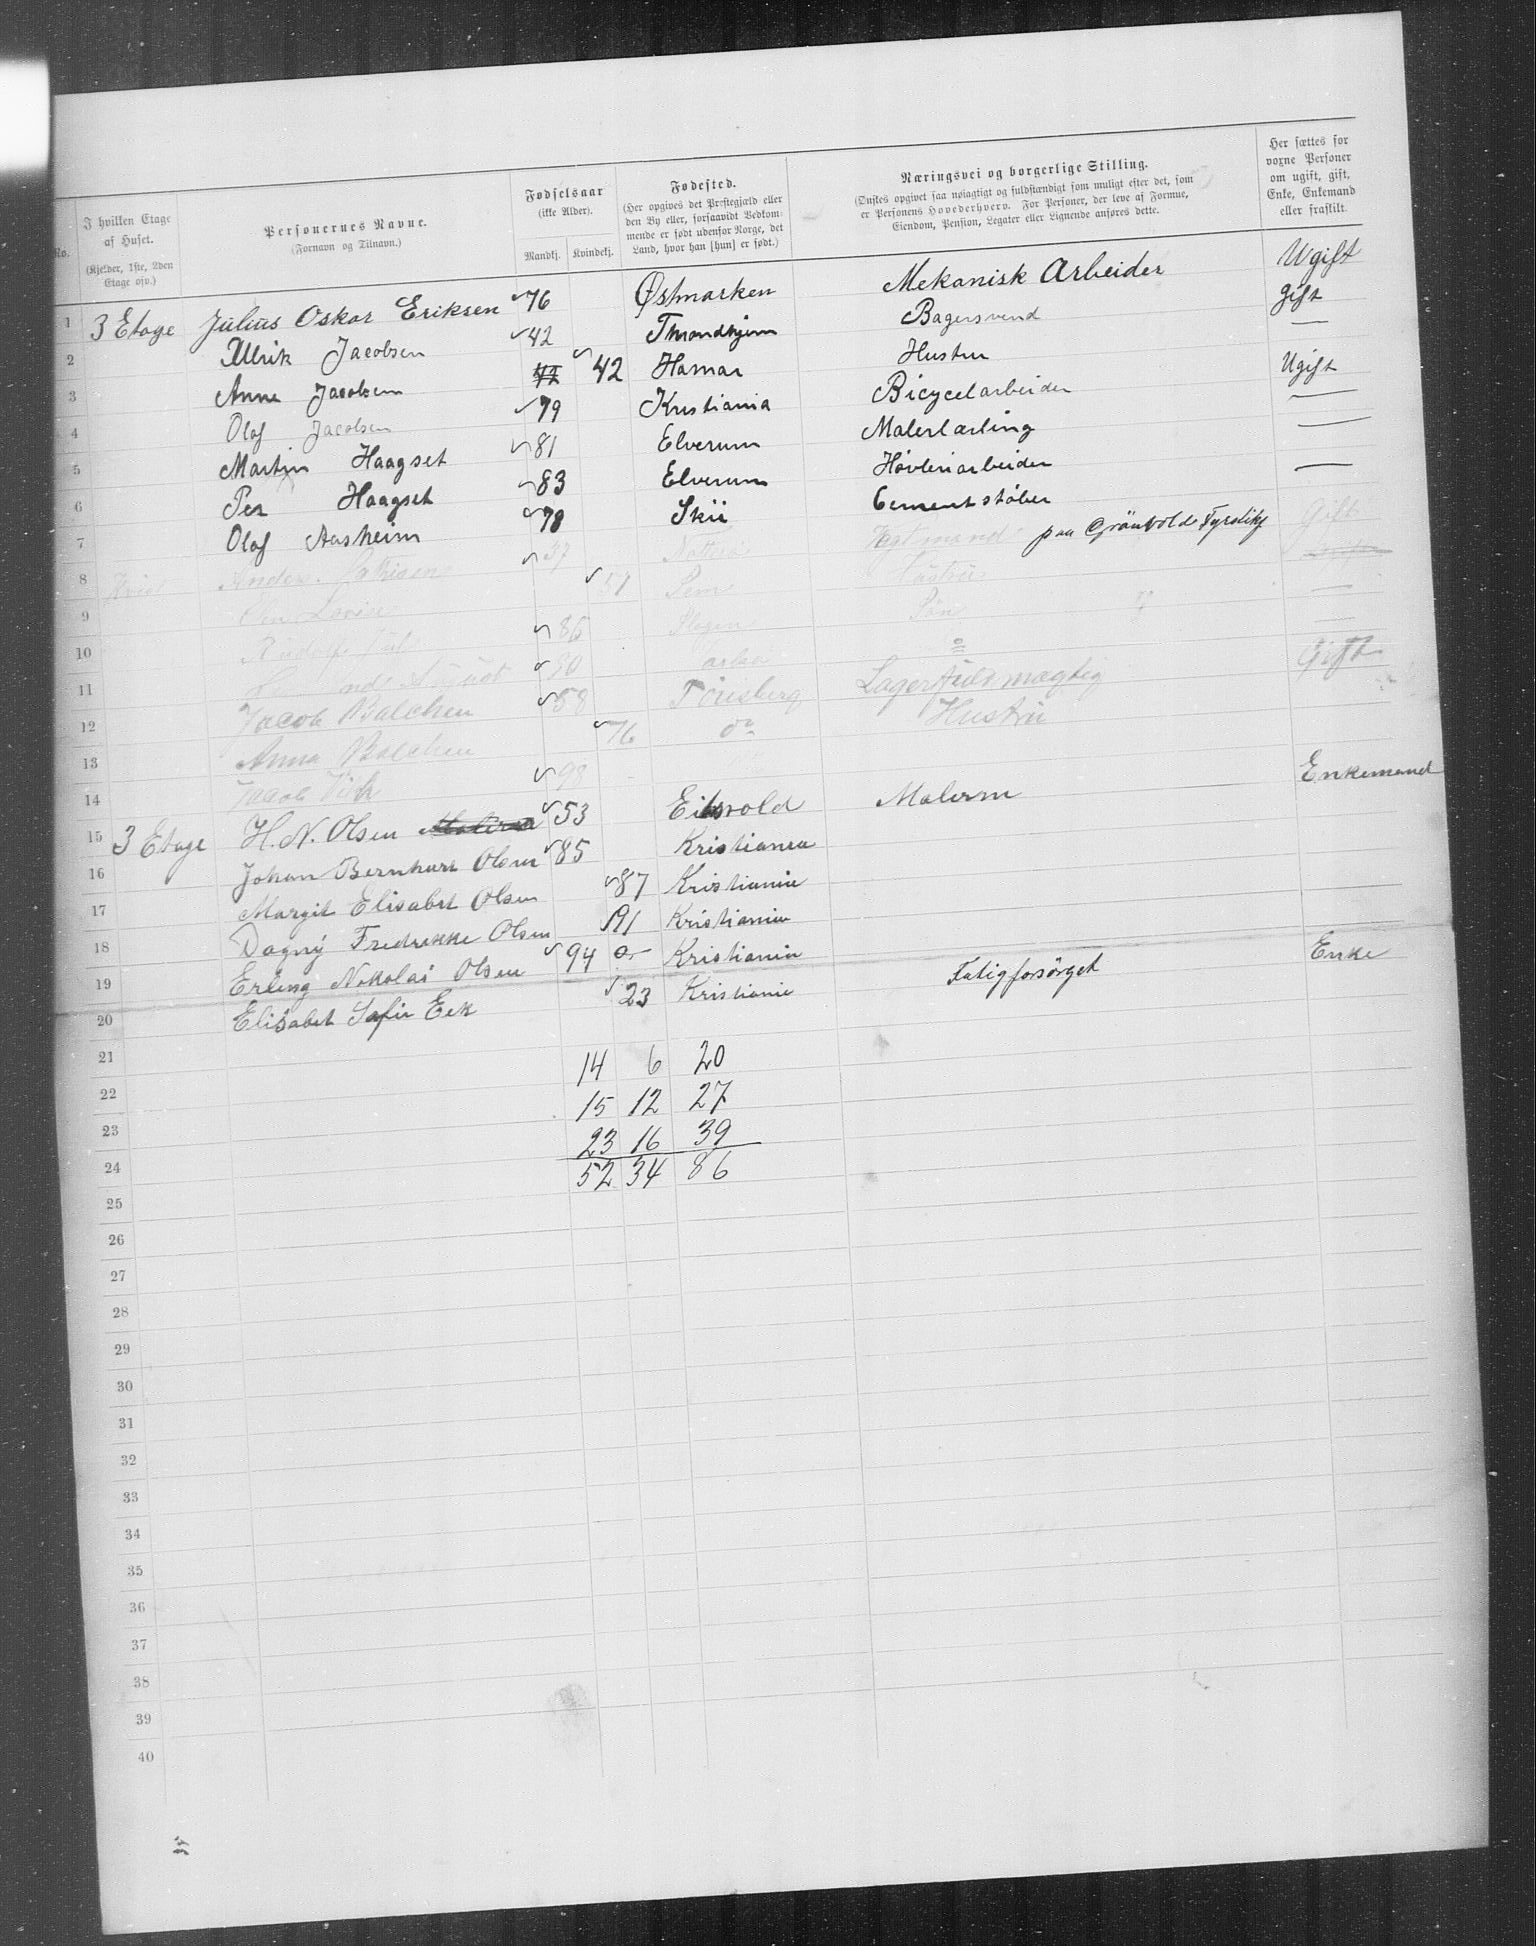 No.
I hvilken Etage af Huset.
(Kjelder, 1ste, 2den Etage osv.)
Personernes Navne.
(Fornavn og Tilnavn.)
Fødselsaar
(ikke Alder).
Mandkj. Kvindekj.
Fødested.
(Her opgives det Præstegjæld eller den By eller, forsaavidt Bedkommende er født udenfor Norge, det Land, hvor han [hun] er født.)
Næringsvei og borgerlige Stilling.
(Ønskes opgivet saa nøiagtigt og fuldstændigt som muligt efter det, som er Personens Hovederhverv. For Personer, der leve af Formue, Eiendom, Pension, Legater eller Lignende anføres dette.
Her sættes for voxne Personer om ugift, gift, Enke, Enkemand eller fraskilt.
1 3 Etage Julius Oskar Eriksen 76 Østmarken Mekanisk Arbeider Ugift
2 Ulrik Jacobsen 42 Throndhjem Bagersvend gift
3 Anna Jacobsen 42 42 Hamar Hustru —
4 Olof Jacobsen 79 Kristiania Bicycelarbeider Ugift
5 Martin Haagset 81 Elverum Malerlærling —
6 Per Haagset 83 Elverum Høvleriarbeider —
7 Olof Aasheim 78 Skii Cementstøber —
8 Anders 37 paa Grönvold Gift
9 51 Sem Hustru
10 86 Slagen Søn —
11 August
12 Jacob Balchen 58 Tönsberg Lagerfuldmægtig Gift
13 Anna Balchen 76 do Hustru
14 Jacob 98
15 3 Etage H. N. Olsen 53 Eidsvold Malerm Enkemand
16 Johan Bernhard Olsen 85 Kristiania
17 Margit Elisabet Olsen 87 Kristiania
18 Dagny Fredrikke Olsen 91 Kristiania
19 Erling Nikolai Olsen 94 Kristiania
20 Elisabet Sofie Eek 23 Kristiania Fatigforsörget Enke
21 14 6 20
22 15 12 27
23 23 16 39
24 52 34 86
25
26
27
28
29
30
31
32
33
34
35
36
37
38
39
40